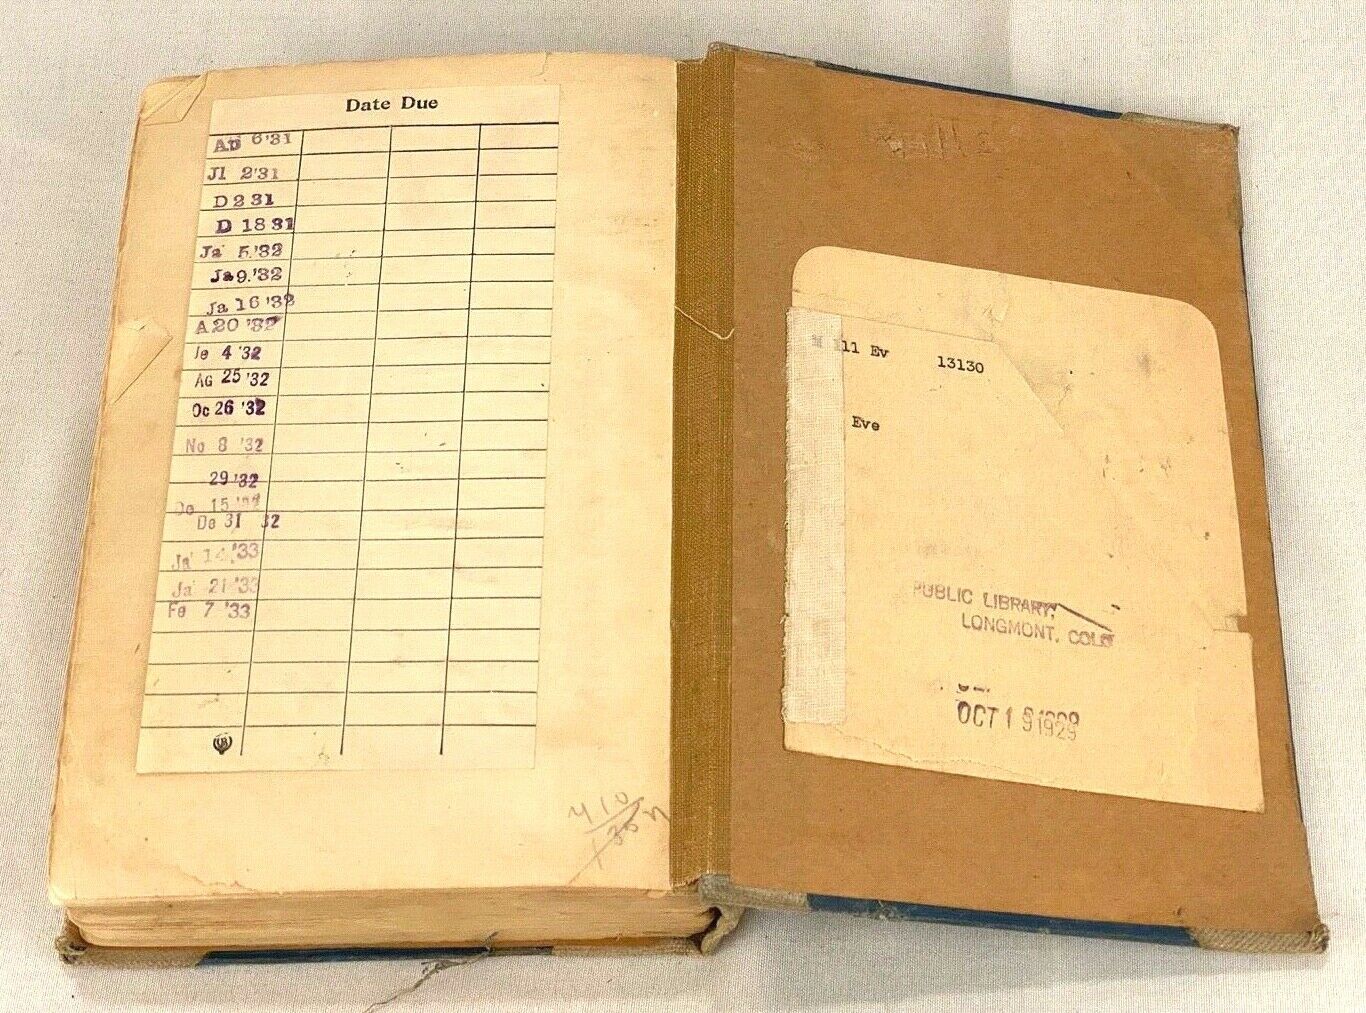 Date Due
6 '31
Jl 2 '31
D 2 31
D 18 31
Ja 5 '32
Ja 9 '32
Ja 16 '32
A 20 '32
Je 4 '32
AG 25 '32
Oc 26 '32
No 8 '32
29 '32
De 15 '32
De 31 32
Ja 14 '33
Ja 21 '33
Fe 7 '33
410
111 Ev 13130
Eve
PUBLIC LIBRARY,
LONGMONT, COLO
OCT 1 9 1929